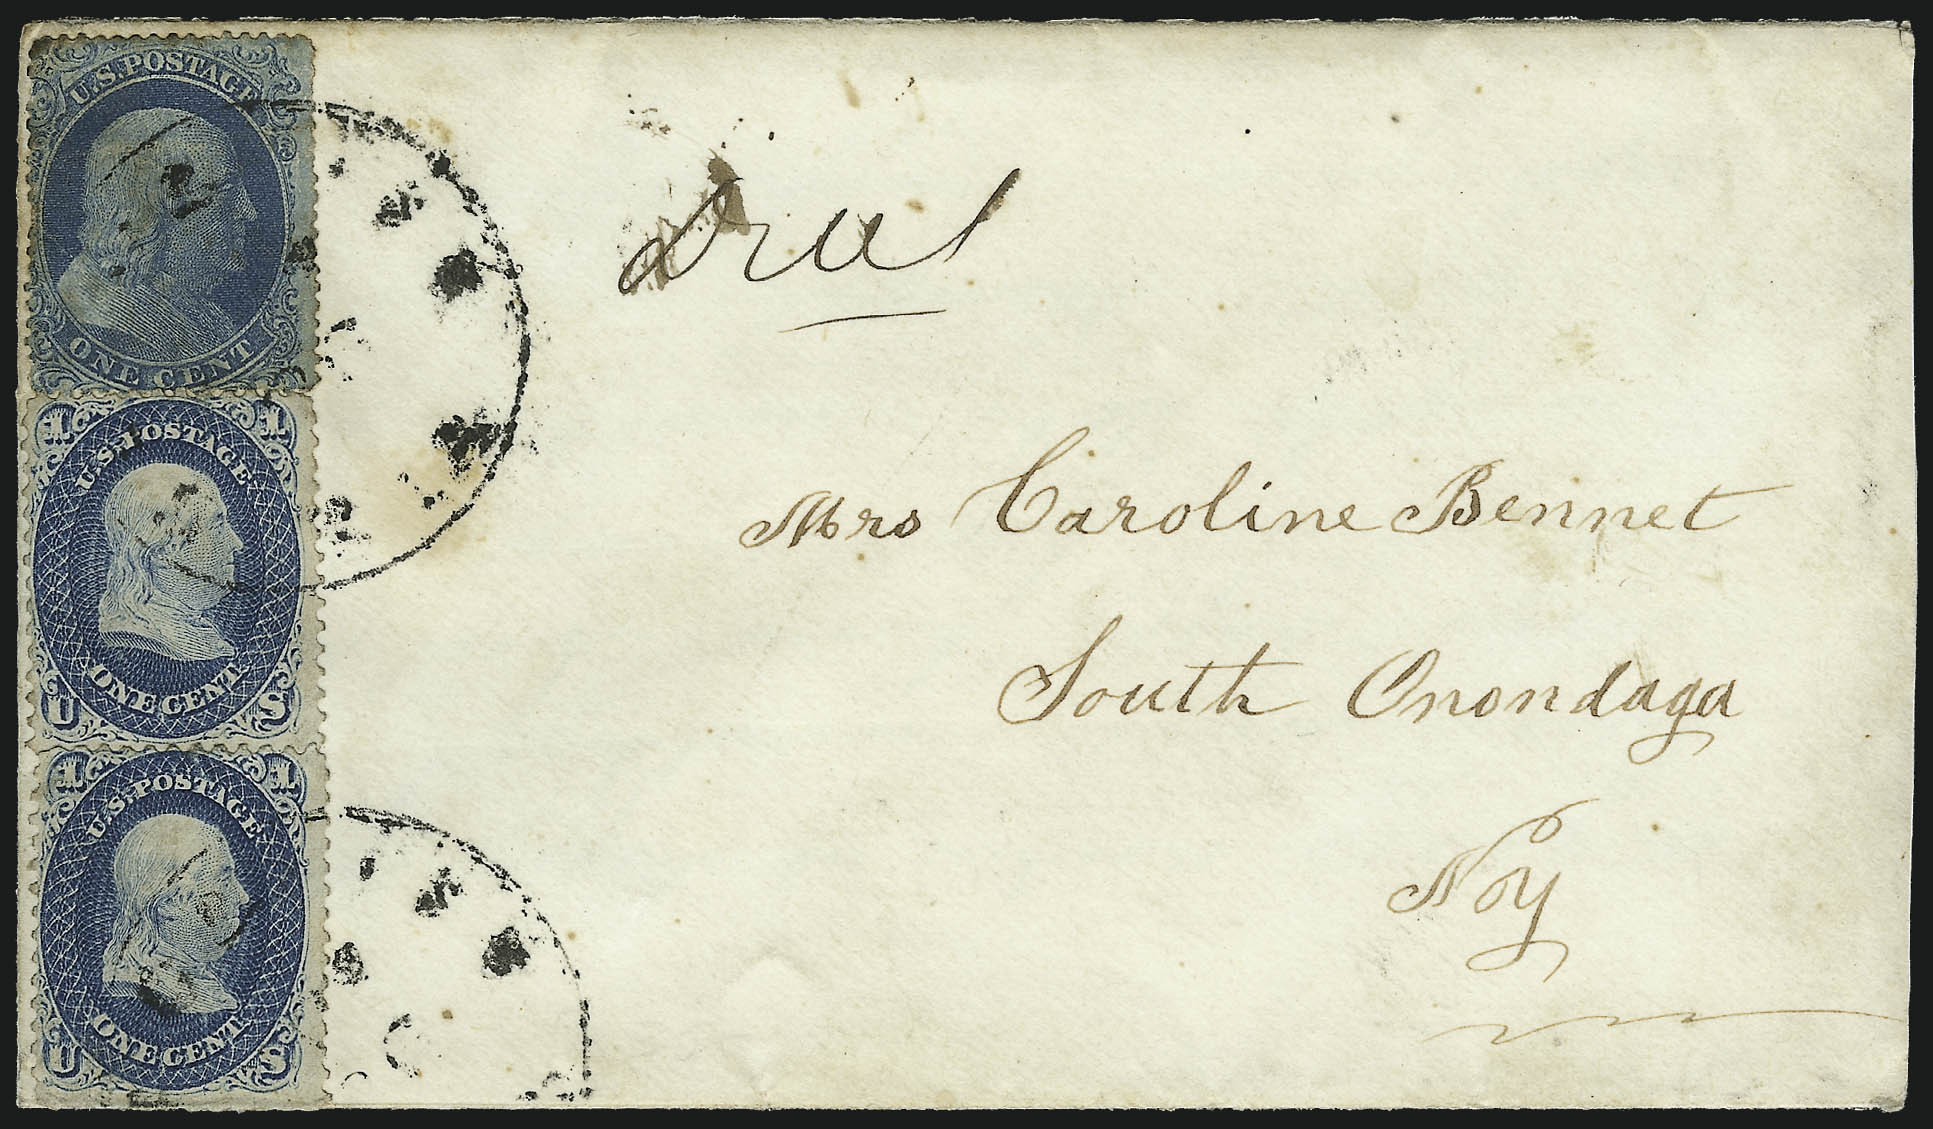 U.S. POSTAGE
ONE CENT
1 1
U.S. POSTAGE
ONE CENT
U S
1 1
U.S. POSTAGE
ONE CENT
U S
Mrs Caroline Bennet
South Onondaga
N y